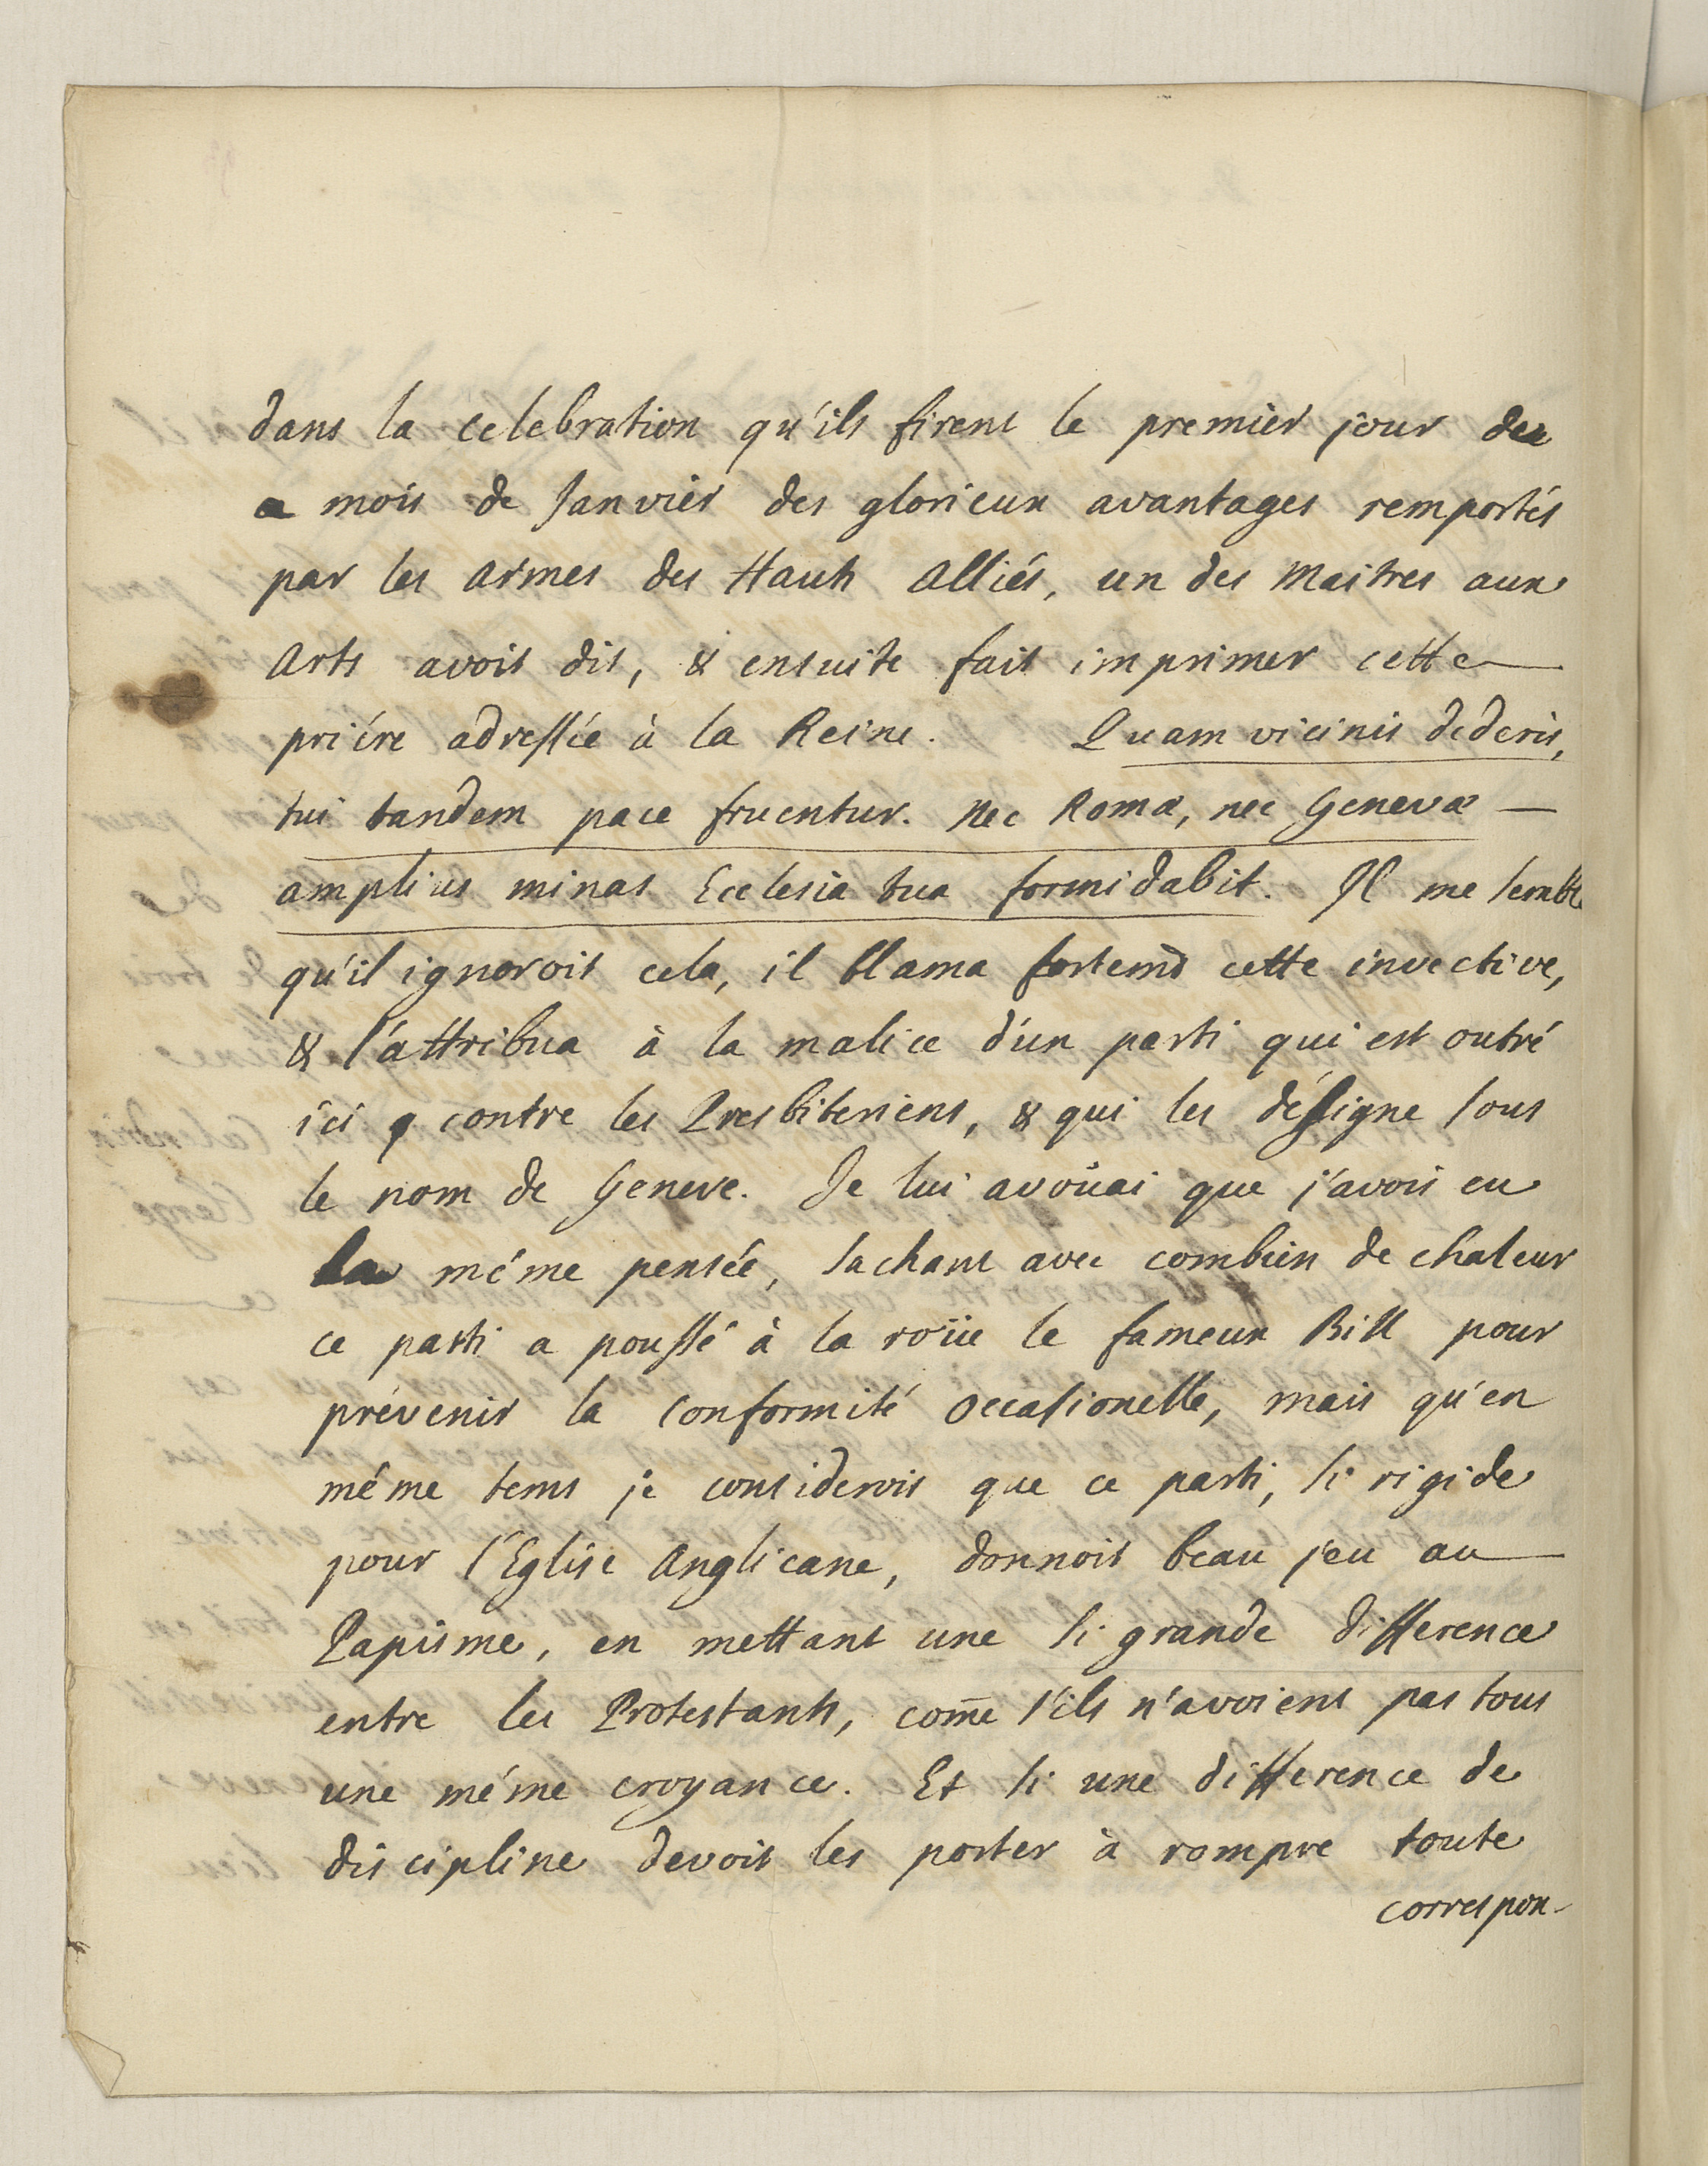 dans la celebration qu'ils firent le premier jour de
mois de Janvier des glorieux avantages remportés
par les armes des Hauts Alliés, un des Maitres aux
Arts avoit dit, & ensuite fait imprimer cette
priére adressée à la Reine. Quam vicinis dederis,
tui tandem pace fruentur. Nec Romæ, nec Genevæ
amplius minas Ecclesia tua formidabit. Il me semble
qu'il ignoroit cela, il blama fortemt cette invective,
& l'attribua à la malice d'un parti qui est outré
ici contre les Presbiteriens, & qui les désigne sous
le nom de Geneve. Je lui avoüai que j'avois eu
la méme pensée, sachant avec combien de chaleur
ce parti a poussé à la roüe le fameux Bill pour
prévenir la Conformité occasionelle, mais qu'en
méme tems je considerois que ce parti, si rigide
pour l'Eglise Anglicane, donnoit beau jeu au
Papisme, en mettant une si grande difference
entre les Protestants, com̄e s'ils n'avoient pas tous
une méme croyance. Et si une difference de
discipline devoit les porter à rompre toute
correspon-